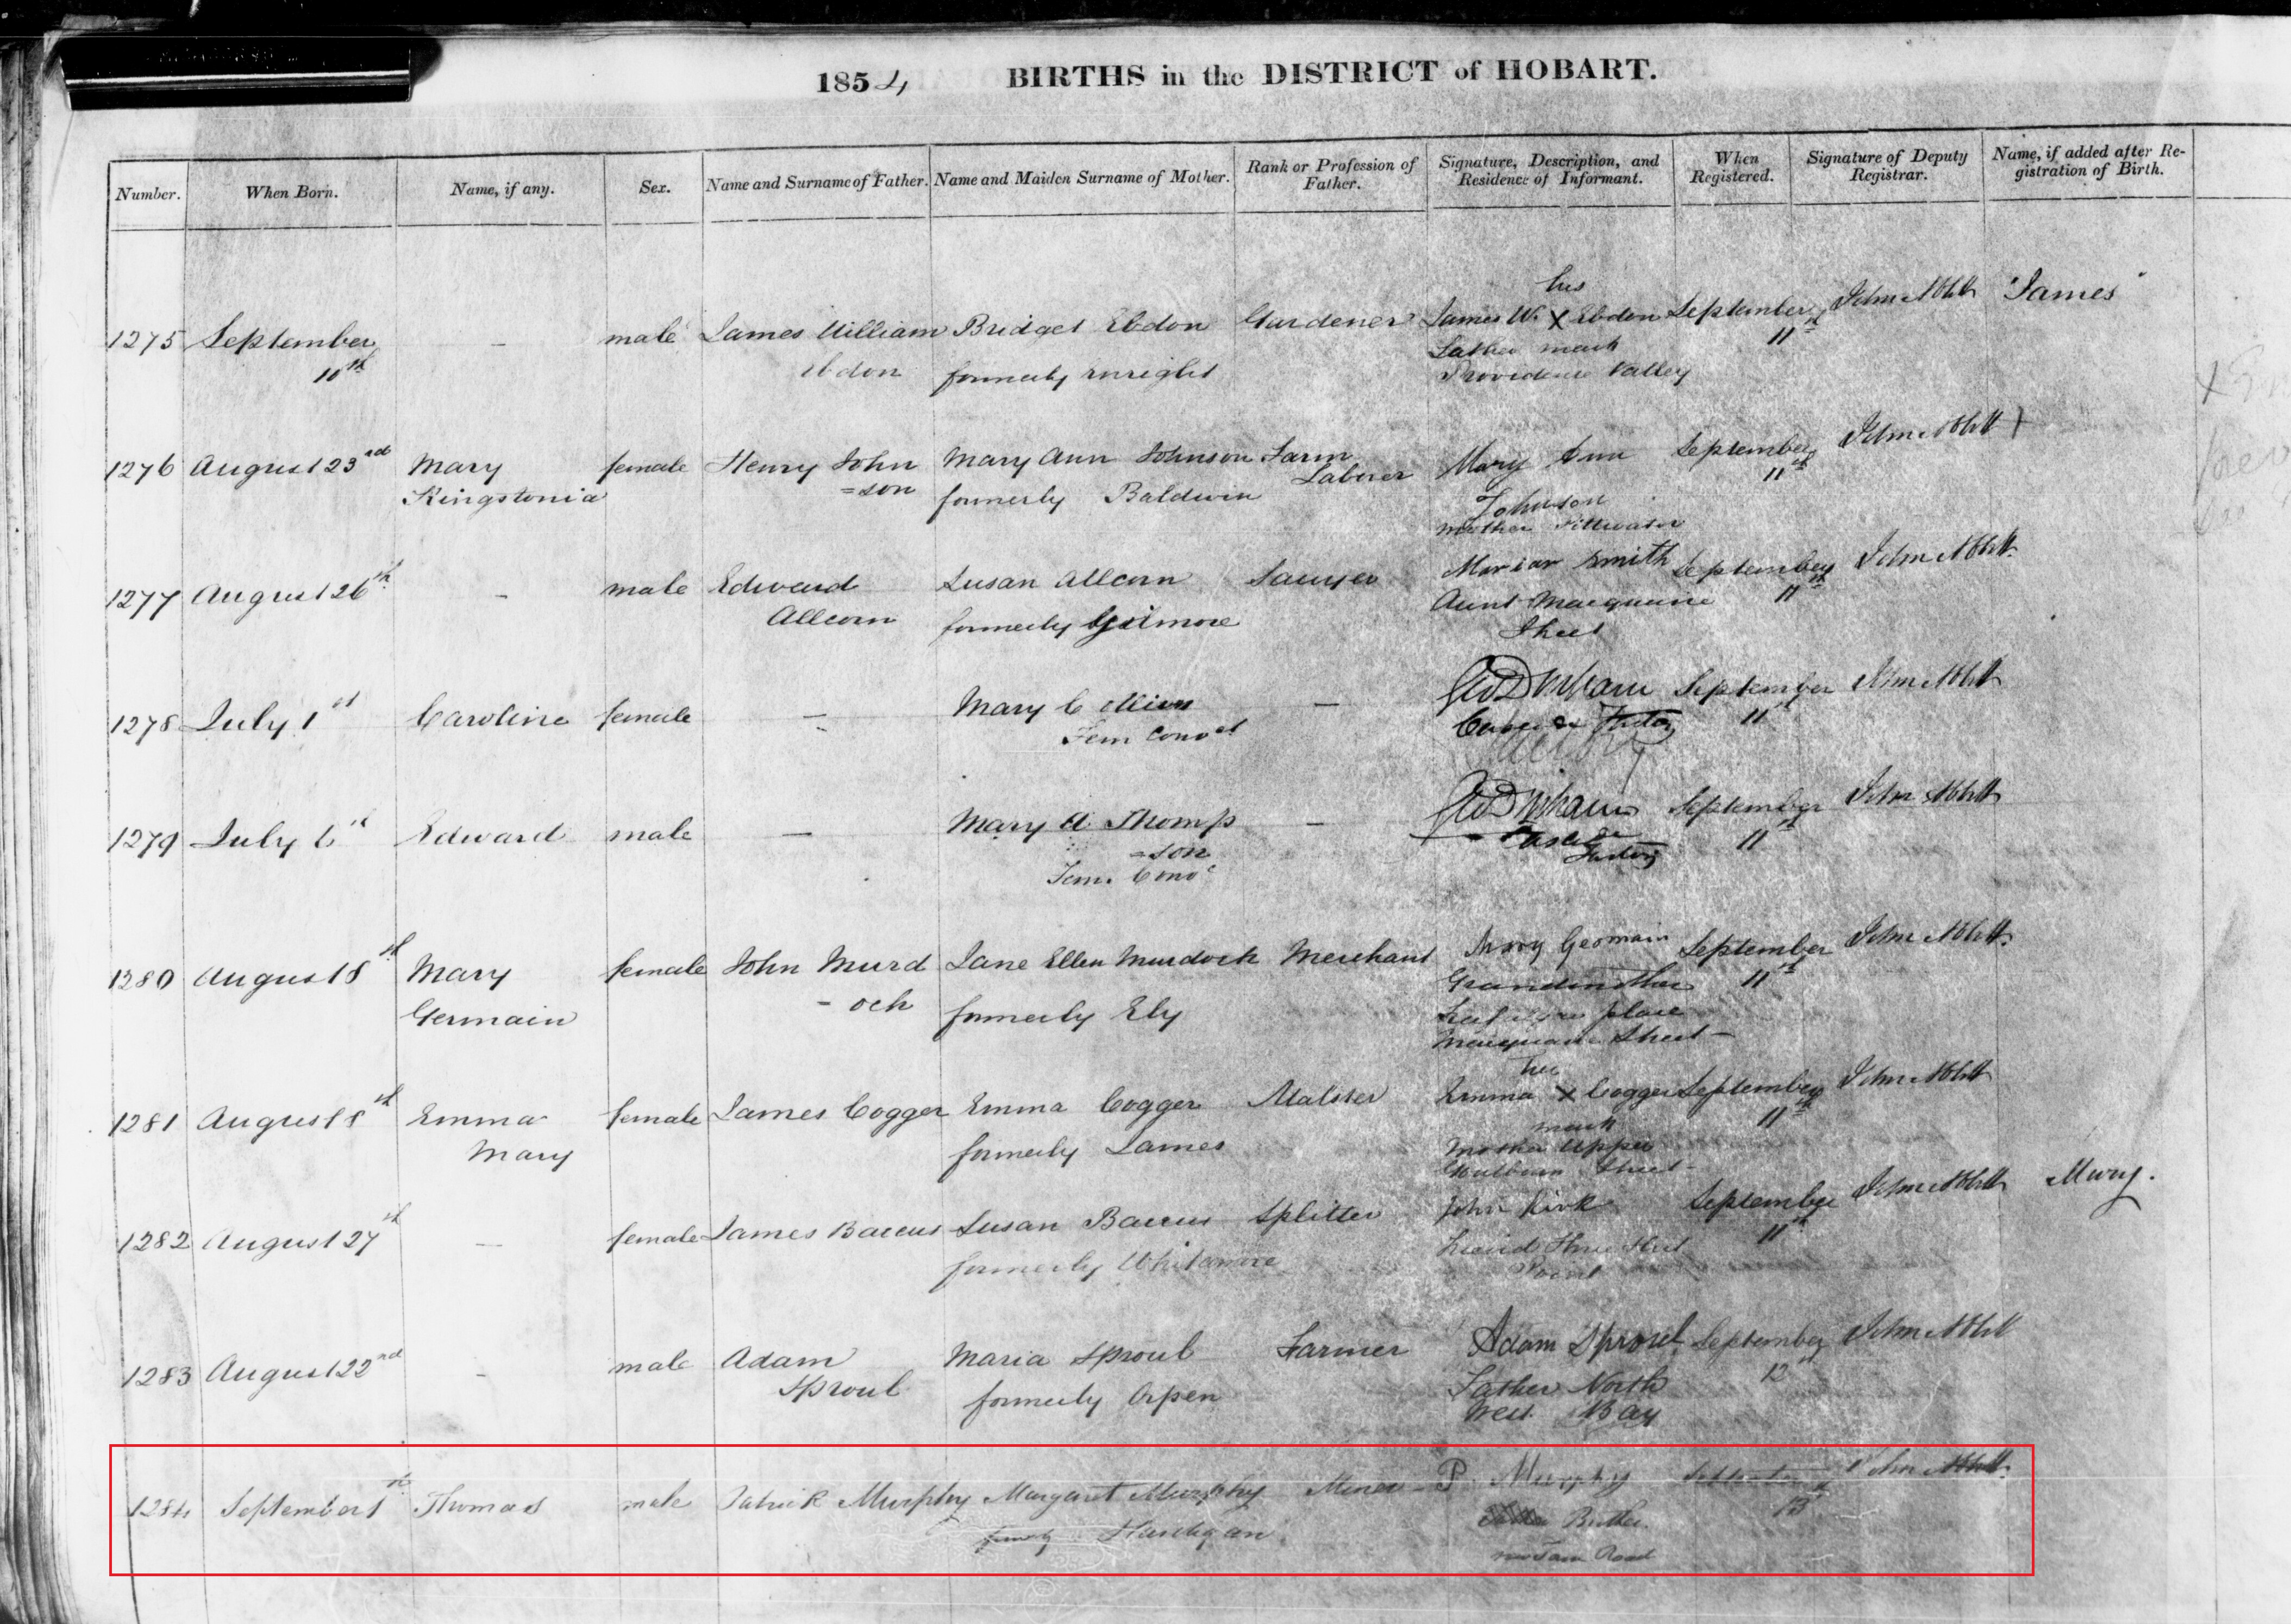 1854 BIRTHS in the DISTRICT of HOBART.
Number. When Born. Name, if any. Sex. Name and Surname of Father. Name and Maiden Surname of Mother. Rank or Profession of Father. Signature, Description, and Residence of Informant. When Registered. Signature of Deputy Registrar. Name, if added after Registration of Birth.
his
1275 September — male James William Bridget Ebdon Gardener James W. X Ebdon September John Abbott "James"
10th Ebdon formerly Enright Father mark 11th
Providence Valley
1276 August 23rd Mary female Henry John Mary Ann Johnson Farm Mary Ann September John Abbott
Kingstonia =son formerly Baldwin Laborer Johnson 11th
mother Pittwater
1277 August 26th - male Edward Susan Allcorn Sawyer Smith September John Abbott
Allcorn formerly Gilmore Aunt Macquarie 11th
Street
1278 July 1st Caroline female — Mary — September John Abbott
Fem Convt 11
1279 July 6th Edward male — Mary A Thomp — September John Abbott
=son 11th
Fem. Convt Factory
1280 August 8th Mary female John Murd Jane Ellen Murdoch Merchant Mary Germain September John Abbott
Germain - och formerly Ely Grandmother 11th
place
Macquarie Street
her
1281 August 8th Emma female James Cogger Emma Cogger Malster Emma X Cogger September John Abbott
Mary formerly James mark 11th
mother Upper
Goulburn Street
1282 August 27th — female James Baccus Susan Baccus Splitter John Kirk September John Abbott Mary.
formerly Whitemore Friend 11th
Point
1283 August 22nd - male Adam Maria Sproul Farmer Adam Sproul September John Abbott
Sproul formerly Orpen Father North 12th
West Bay
1284 September 1st Thomas male Patrick Murphy Margaret Murphy Miner P. Murphy September John Abbott
formerly 13
Road